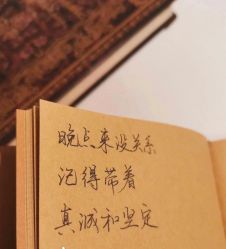 晚点来没关系
记得带着
真诚和坚定